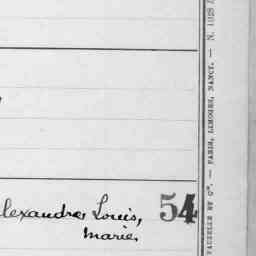 lexandre, Louis, 54
Marie.
VAUZELLE ET Cⁱᵉ. — PARIS, LIMOGES, NANCY. — N. 1028